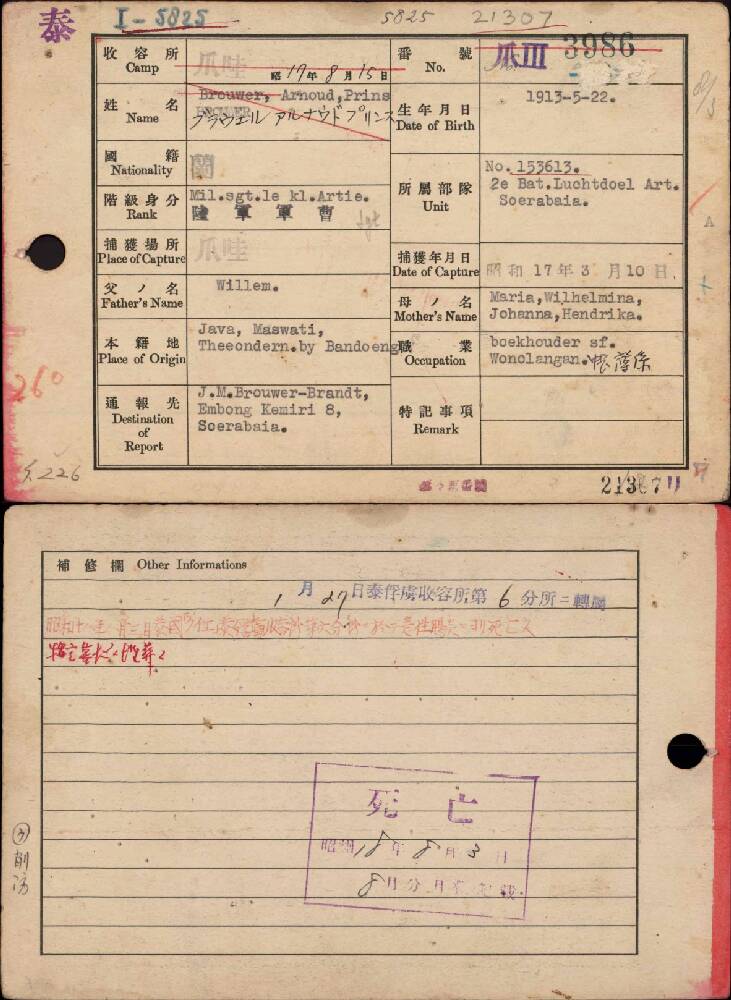 泰 I-5825 5825 21307
收容所 Camp 爪哇 昭17年8月15日
番號 No. 爪III 3986
姓名 Name Brouwer, Arnoud,Prins
ブラウエル アルナウドプリンス
生年月日 Date of Birth 1913-5-22.
國籍 Nationality 蘭
階級身分 Rank Mil.sgt.le kl.Artie.
陸軍軍曹
所屬部隊 Unit No. 153613.
2e Bat.Luchtdoel Art.
Soerabaia.
捕獲場所 Place of Capture 爪哇
捕獲年月日 Date of Capture 昭和17年3月10日
父ノ名 Father's Name Willem.
母ノ名 Mother's Name Maria,Wilhelmina,
Johanna,Hendrika.
本籍地 Place of Origin Java, Maswati,
Theeondern.by Bandoeng
職業 Occupation boekhouder sf.
Wonolangan.
通報先 Destination of Report J.M.Brouwer-Brandt,
Embong Kemiri 8,
Soerabaia.
特記事項 Remark
260
226
補修欄 Other Informations
1月27日泰俘虜收容所第6分所ニ轉屬
死亡
昭和18年8月3日
8月分月